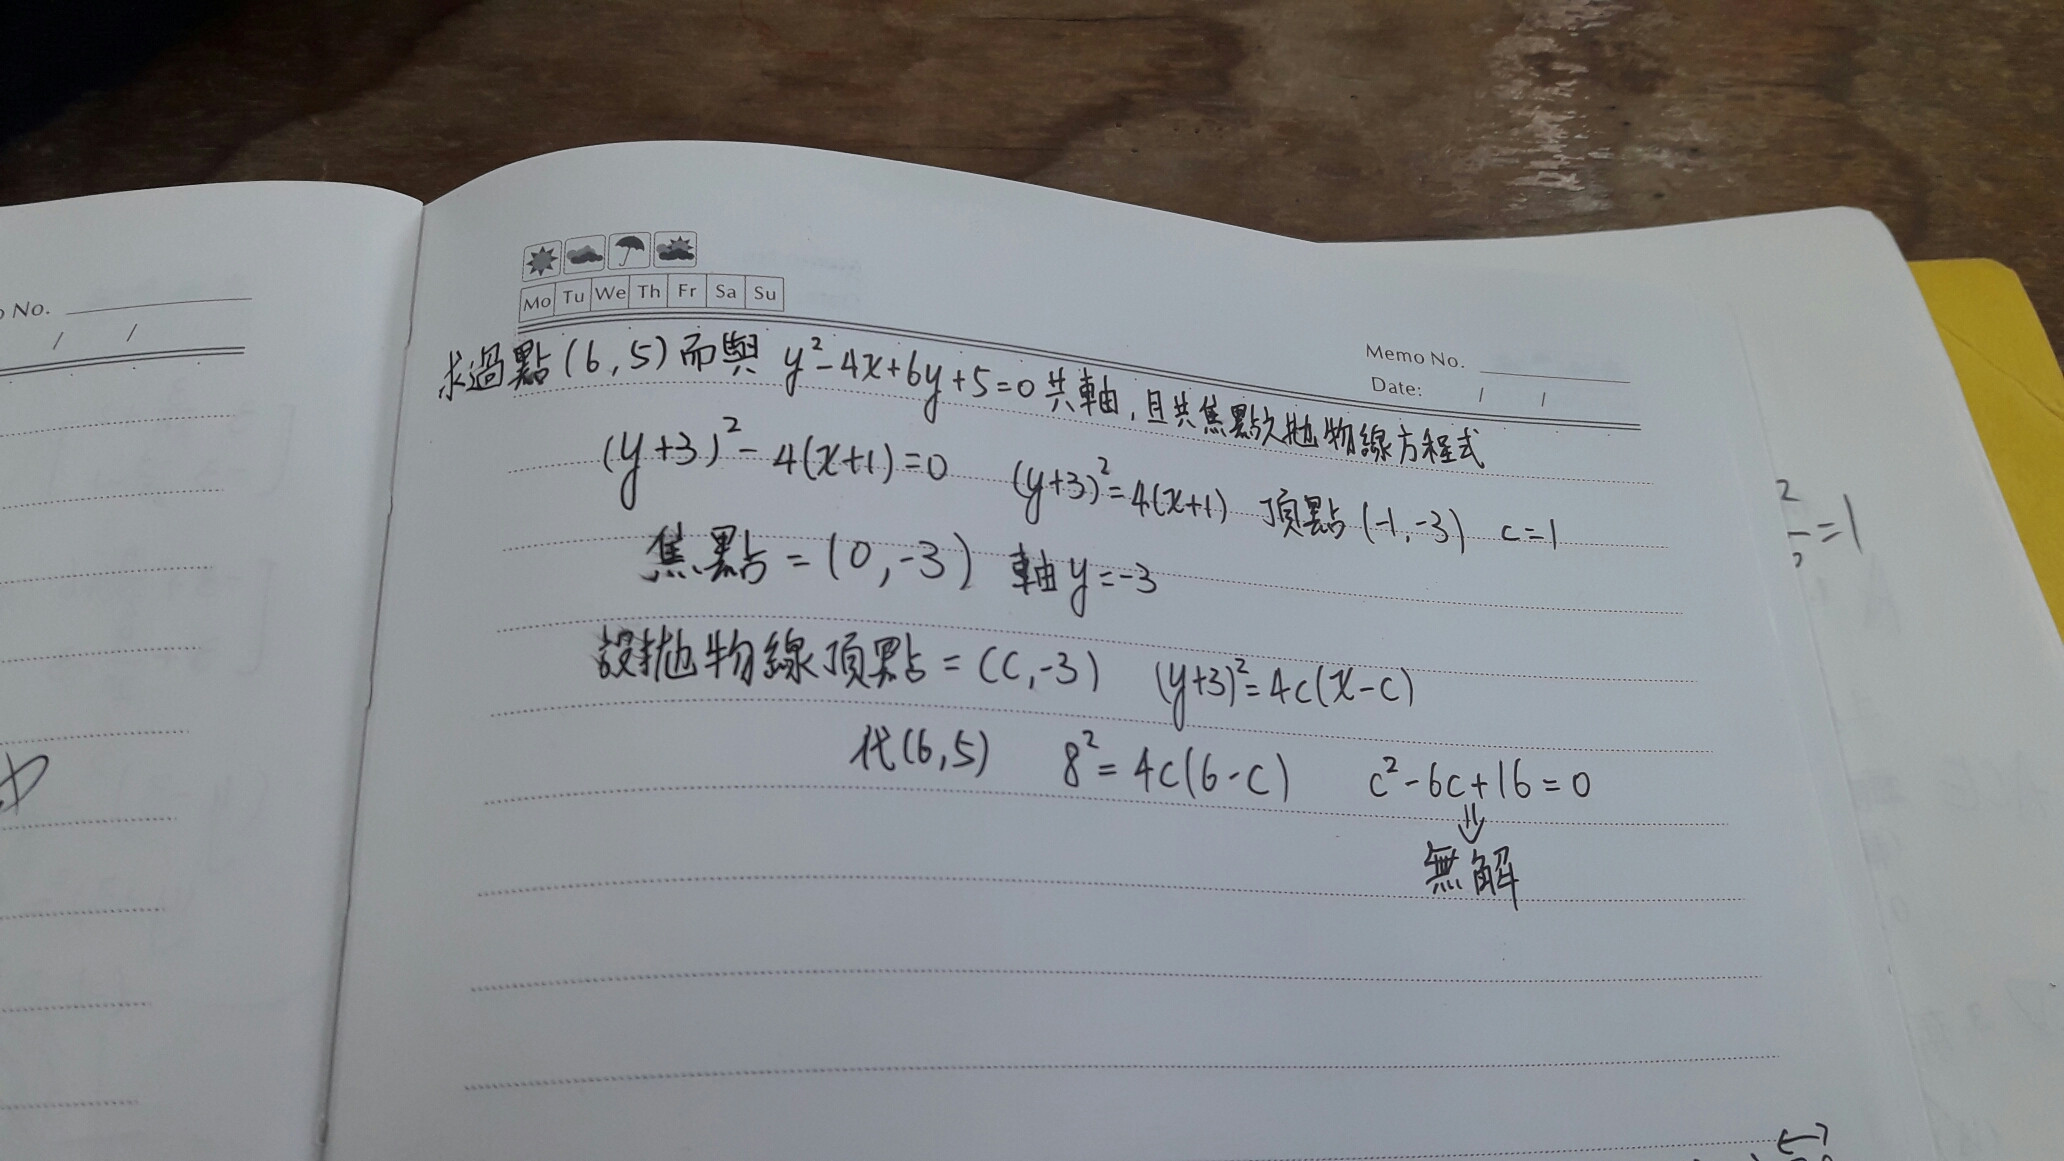 No.
/ /
Mo Tu We Th Fr Sa Su
Memo No.
Date: / /
求過點(6,5)而與 y²-4x+6y+5=0 共軸,且共焦點之拋物線方程式
(y+3)²-4(x+1)=0 (y+3)²=4(x+1) 頂點(-1,-3) c=1
焦點=(0,-3) 軸y=-3
設拋物線頂點=(c,-3) (y+3)²=4c(x-c)
代(6,5) 8²=4c(6-c) c²-6c+16=0
⇓
無解
=1